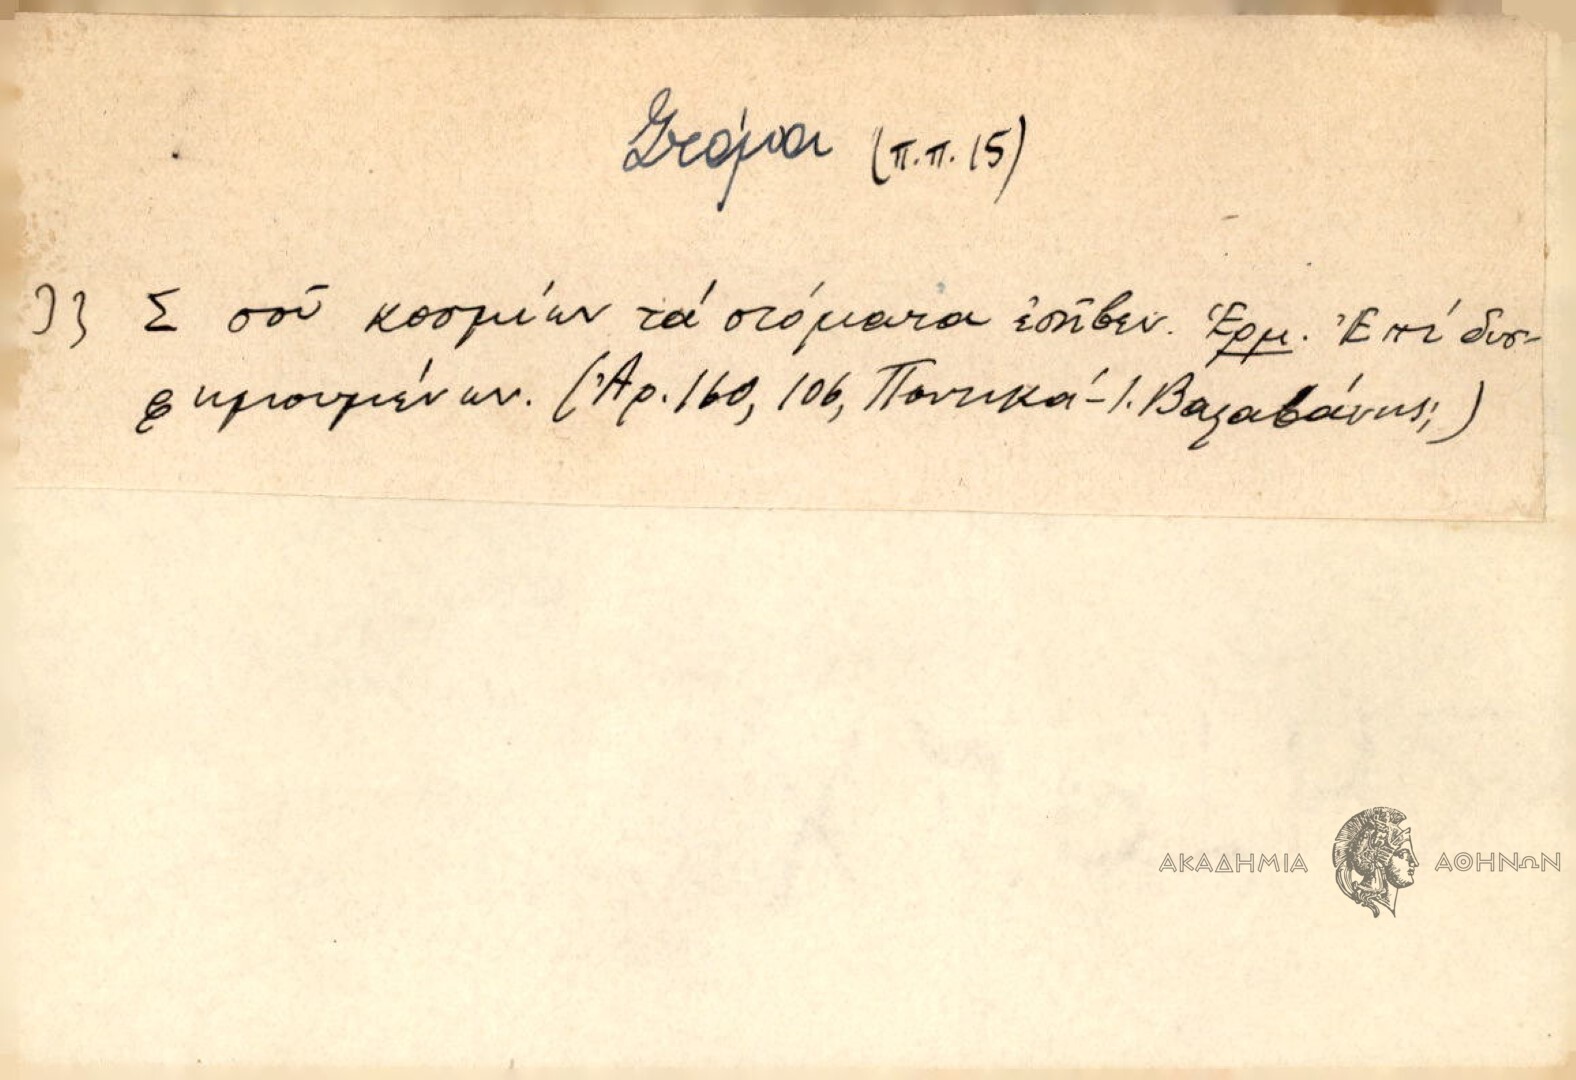 Στόμα (π.π. 15)
Σ σοῦ κοσμίων τά στόματα ἐσέβεν. Ἑρμ. Ἐπί δυσ-
φημουμένων. (Ἀρ. 160, 106, Ποντικά - Ι. Βαλαβάνης;)
ΑΚΑΔΗΜΙΑ ΑΘΗΝΩΝ